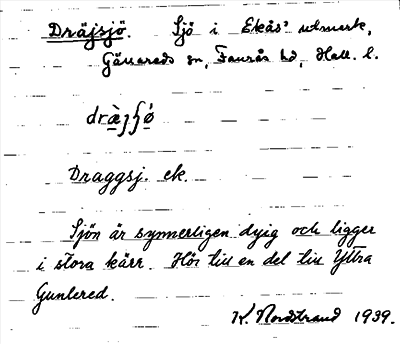 Dräjsjö. Sjö i Ekås' utmark,
Gällareds sn, Faurås hd, Hall. l.
drὰjʃǿ
Draggsj. ek.
Sjön är synnerligen dyig och ligger
i stora kärr. Hör till en del till Yttra
Gunlered.
K. Nordstrand 1939.